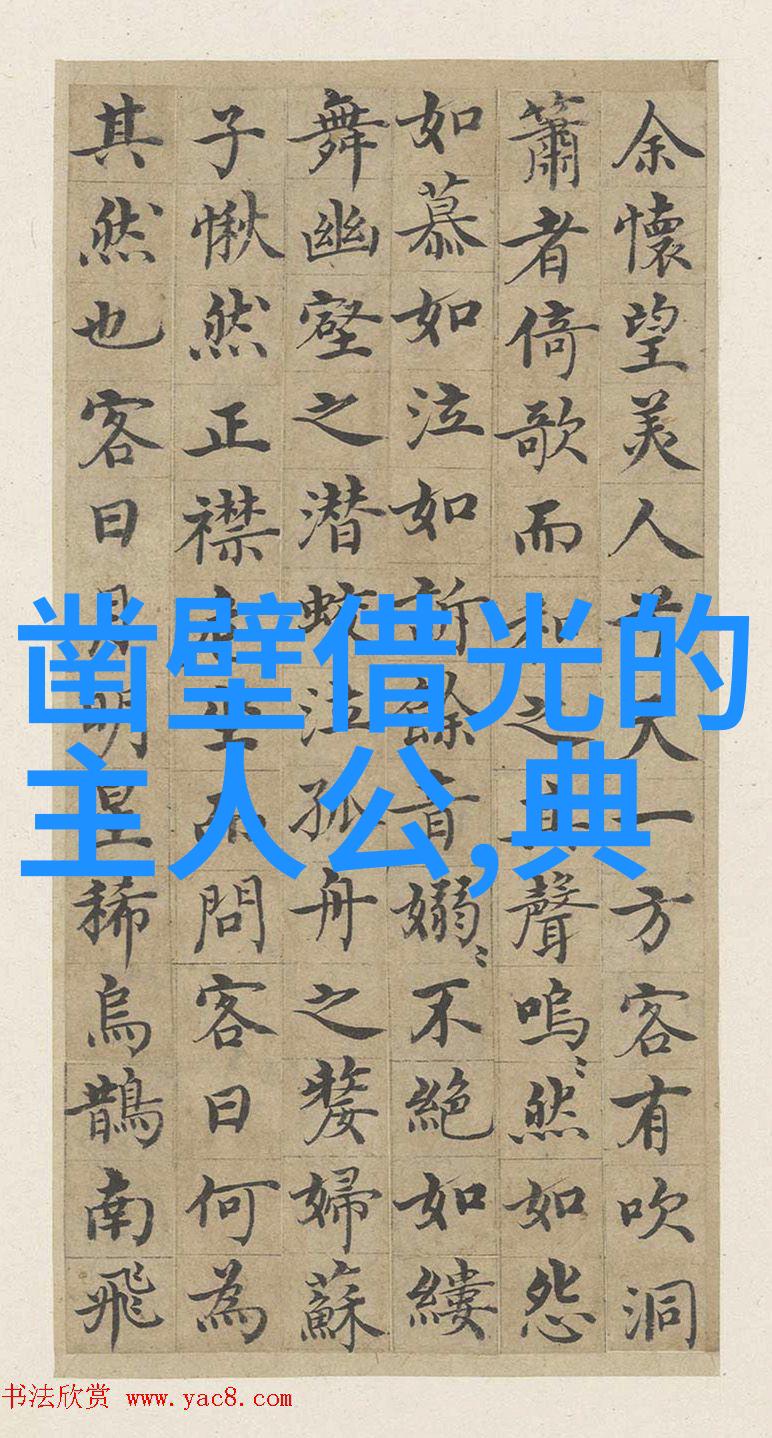 余懷望美人兮天一方客有吹洞
簫者倚歌而和之其聲嗚〻然如怨
如慕如泣如訴餘音嫋〻不絕如縷
舞幽壑之潜蛟泣孤舟之嫠婦蘇
子愀然正襟危坐而問客曰何為
其然也客曰月明星稀烏鵲南飛
凿壁借光的
主人公,典
书法欣赏 www.yac8.com